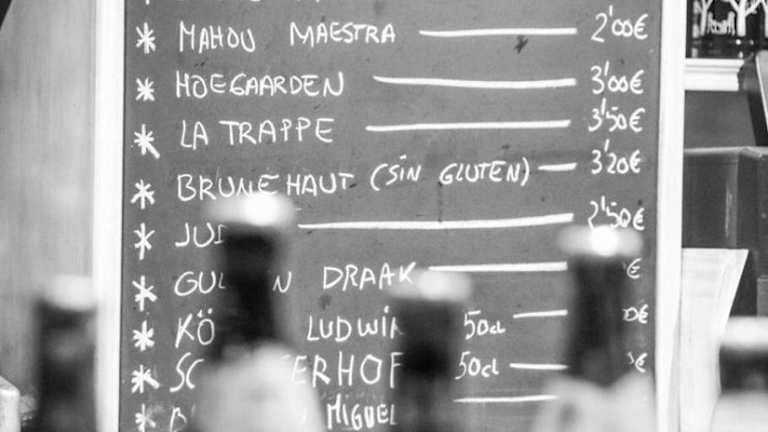 * MAHOU MAESTRA 2'00€
* HOEGAARDEN 3'00€
* LA TRAPPE 3'50€
* BRUNEHAUT (SIN GLUTEN) 3'20€
* 2'50€
* DRAAK €
* LUDWIG 50cl €
* 50cl €
* MIGUEL